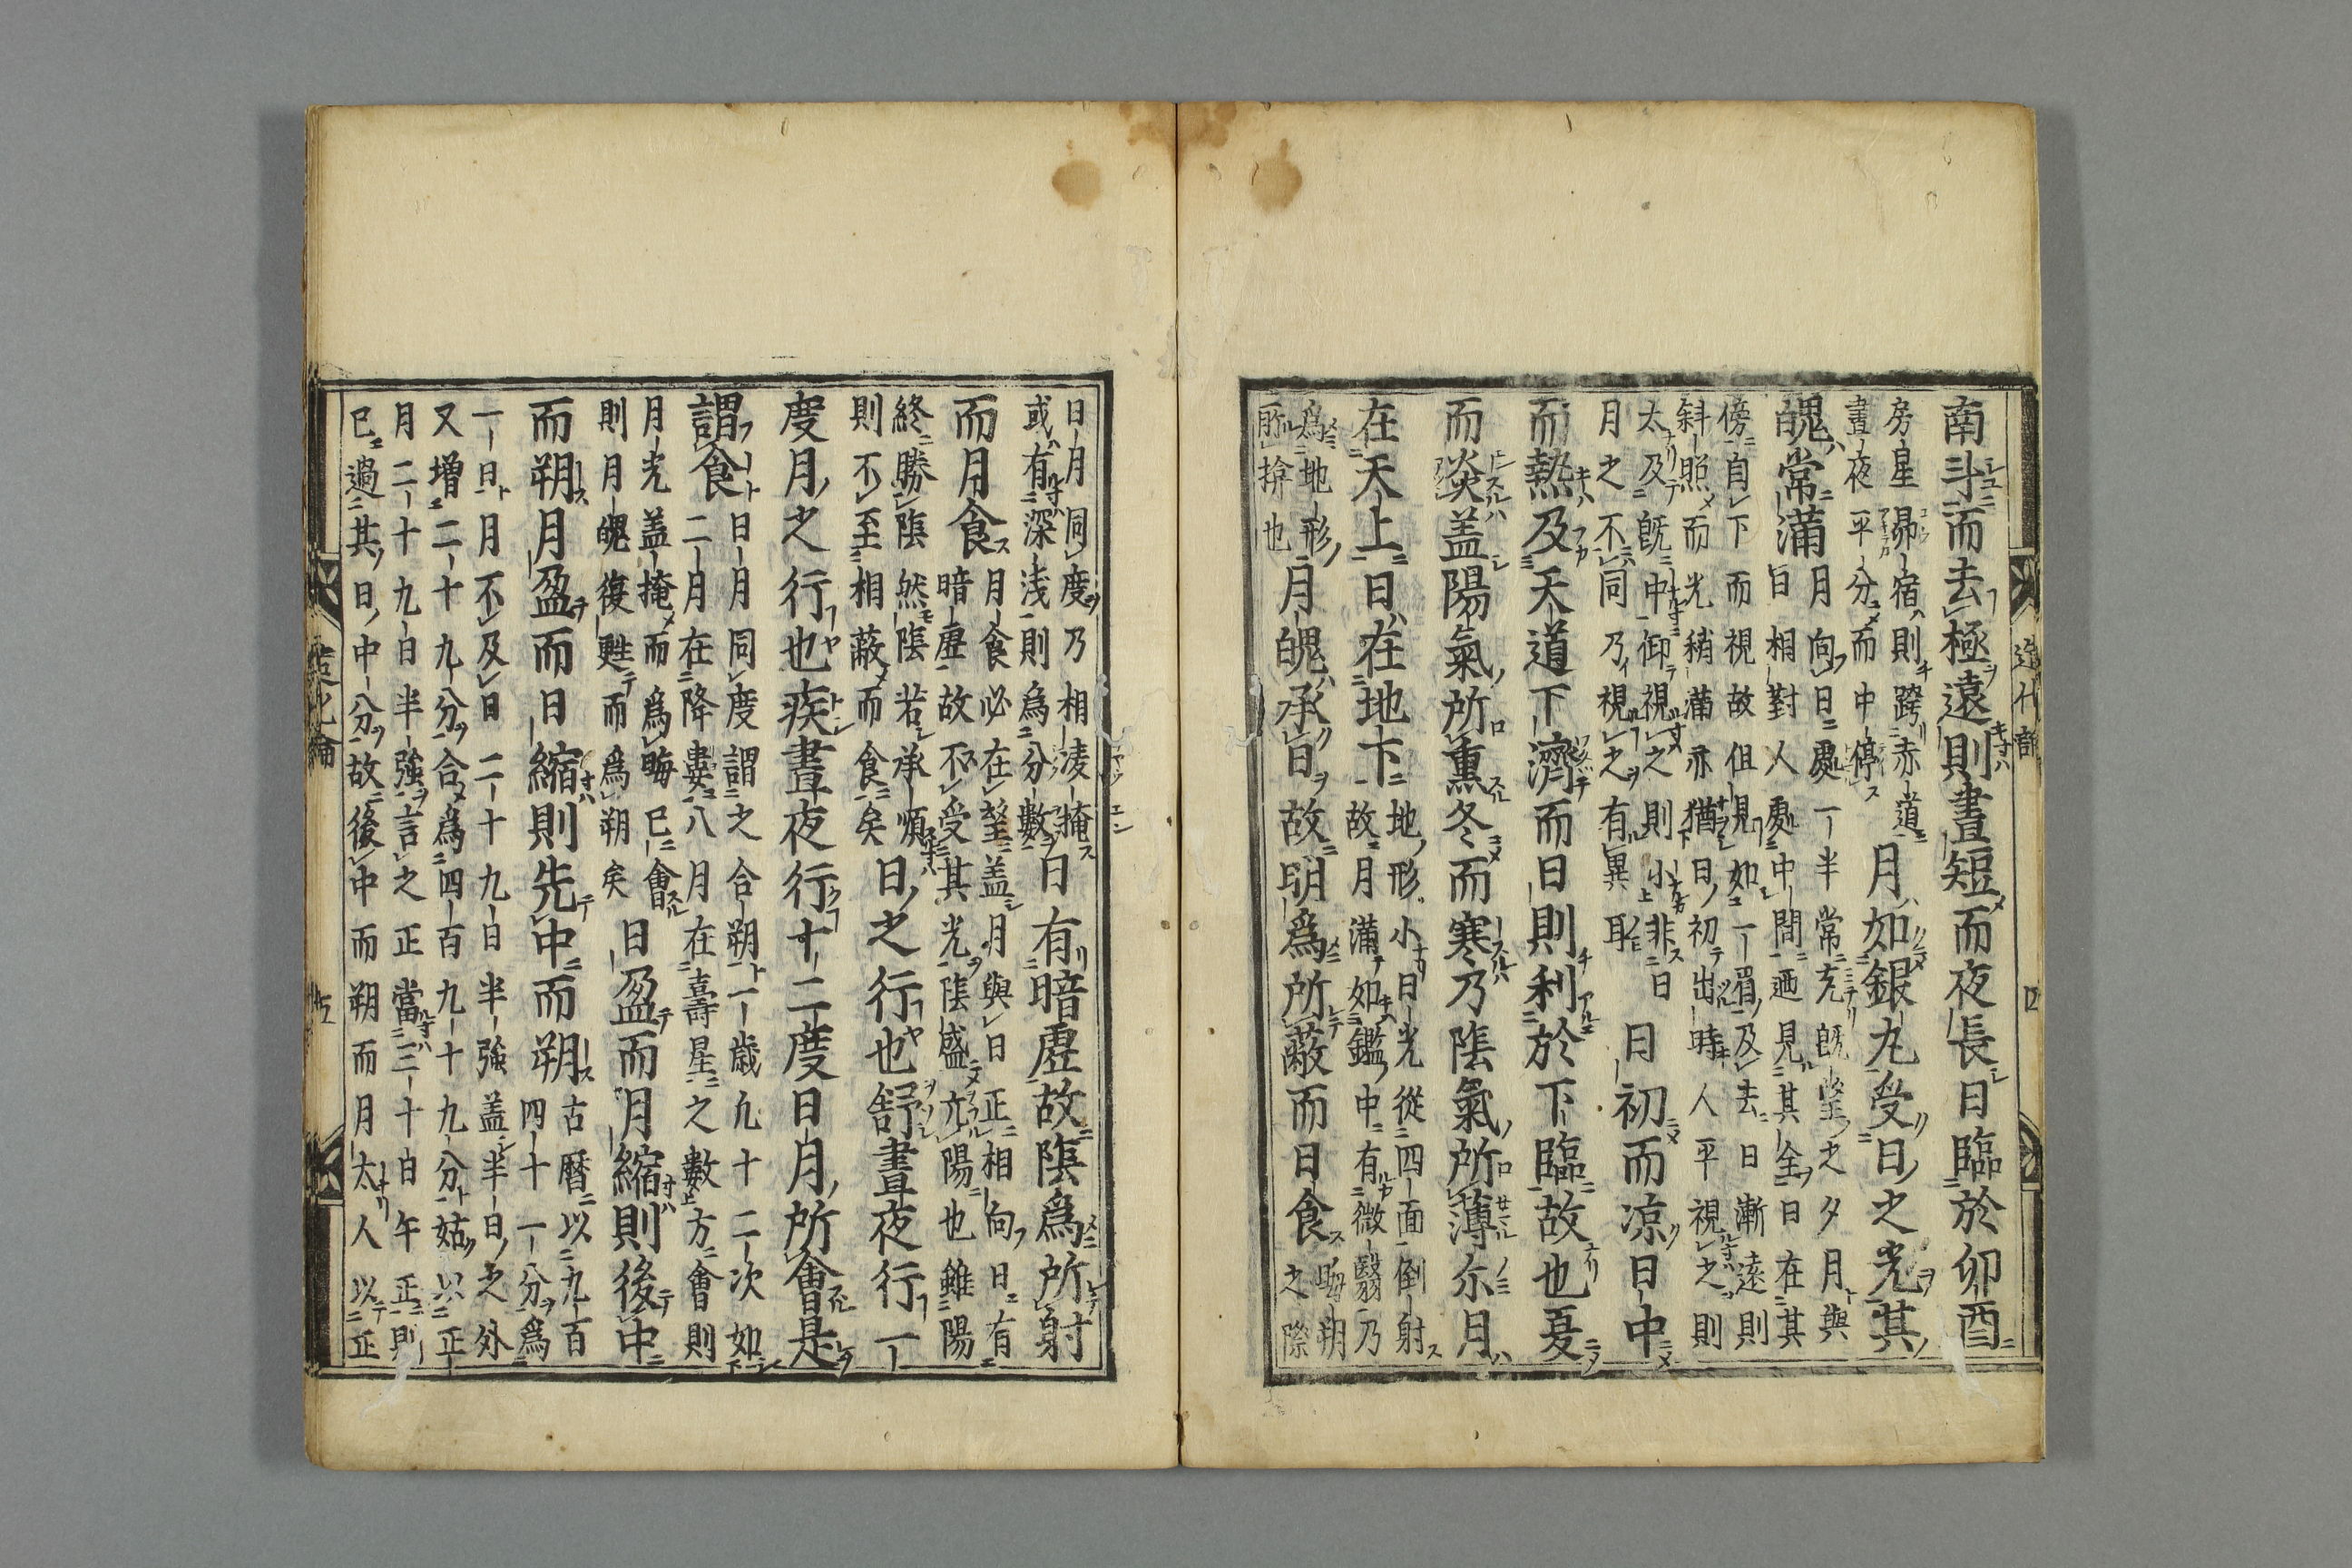 南斗而去極遠則晝短而夜長日臨於卯酉
房星昴宿則跨赤道
晝夜平分而中停
月如銀丸受日之光其
魄常滿
月向日處一半常充既望之夕月與
日相對人處中間迺見其全日在其
傍自下而視故但見如一眉及去日漸遠則
斜照而光稍滿亦猶日初出時人平視之則
太及既中仰視之則小非日
月之不同乃視之有異耳
日初而凉日中
而熱及天道下濟而日則利於下臨故也夏
而炎盖陽氣所熏冬而寒乃隂氣所薄尒月
在天上日在地下
地形小日光從四面倒射
故月滿如鑑中有微翳乃
為地形
所揜也
月魄承旨故明為所蔽而日食
晦朔
之際
日月洞度乃相凌掩
或有深浅則為分數
日有暗虚故隂為所射
而月食
月食必在望盖月與日正相向日有
暗虚故不受其光隂盛亢陽也雖陽
終勝隂然隂若承順
則不至相蔽而食矣
日之行也舒晝夜行一
度月之行也疾晝夜行十二度日月所會是
謂食
日月同度謂之合朔一歳凢十二次如
二月在降婁八月在壽星之數方會則
月光盖掩而為晦巳會
則月魄復甦而為朔矣
日盈而月縮則後中
而朔月盈而日縮則先中而朔
古暦以九百
四十一分為
一日月不及日二十九日半強盖半日之外
又増二十九分合為四百九十九分姑以正
月二十九日半強言之正當三十日午正則
巳過其日中分故後中而朔而月太人以正
造化論
五